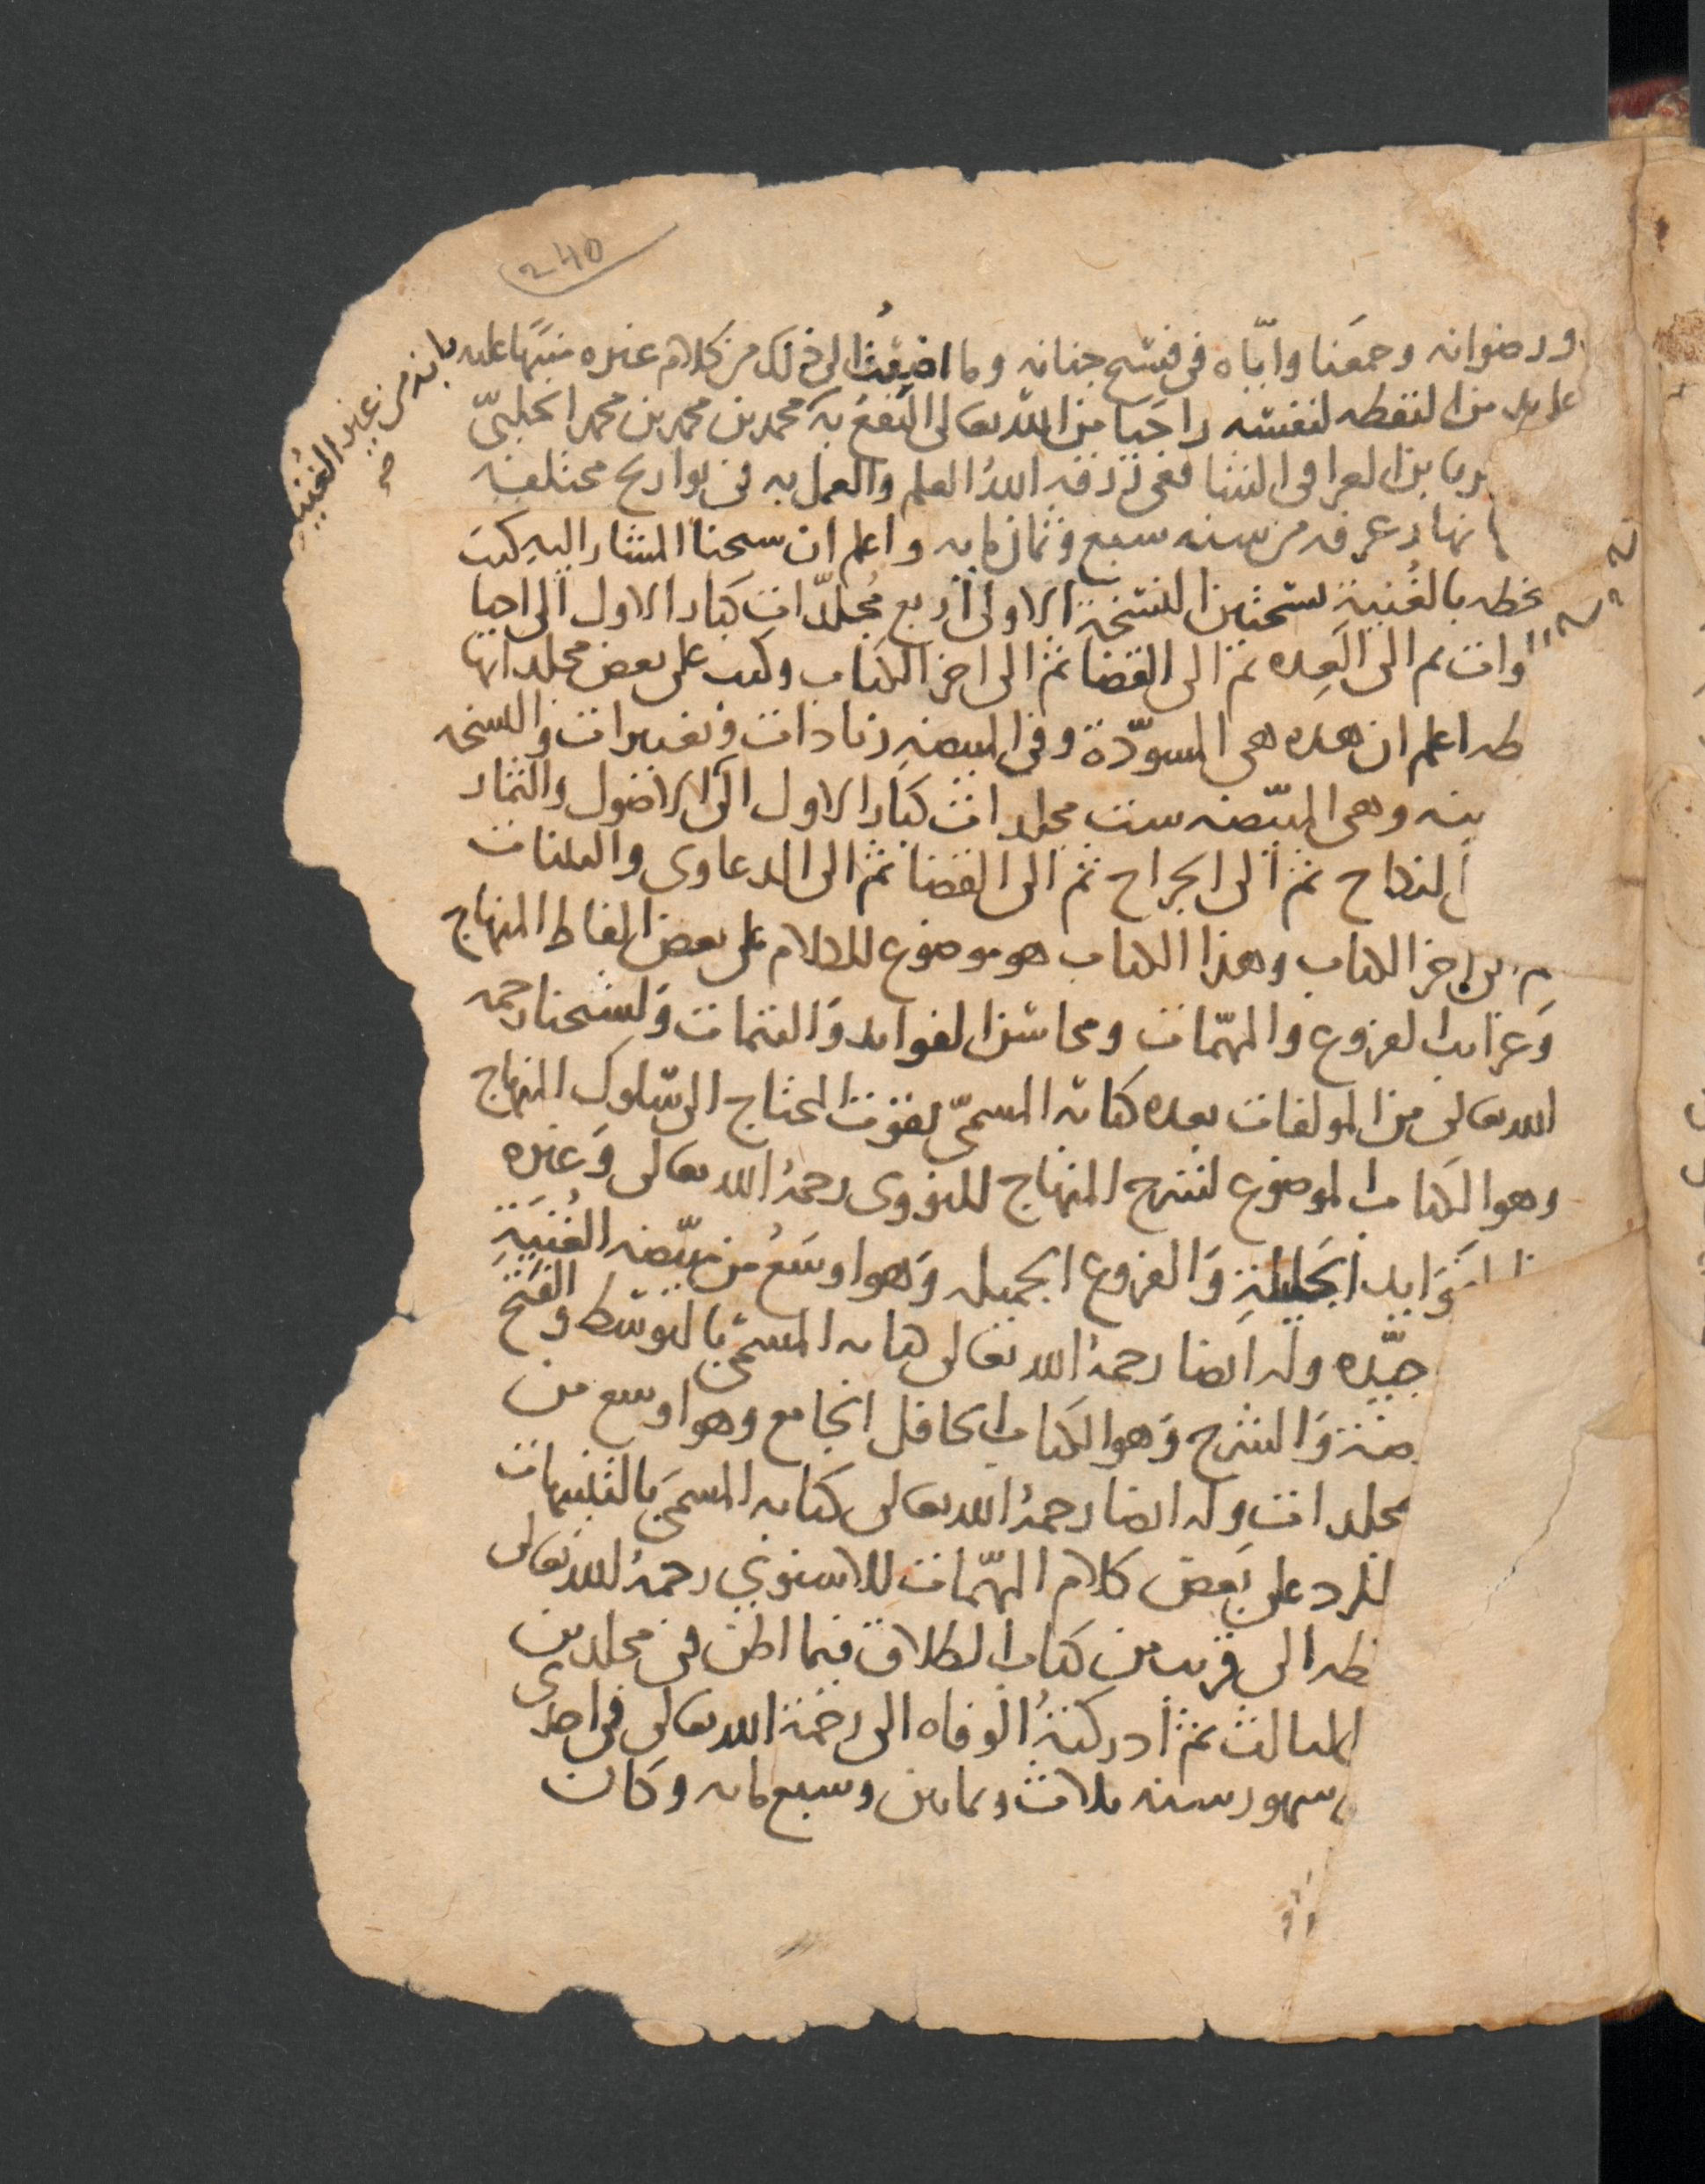 240
ورضوانه وجمعنا واياه في فسيح جنانه وما اضيفت الى ذلك من كلام غيره منبها عليه
بانه من غير الغنية صح
على يد من التقطه لنفسه راجيا من الله تعالى النفع به محمد بن محمد بن محمد الحلبي
بابن العراقي الشافعي رزقه الله العلم والعمل به في تواريخ مختلفة
نهار عرفه من سنه سبع وثمان مايه واعلم ان شيخنا المشار اليه كتب
بخطه بالغنية نسختين النسخة الاولى اربع مجلدات كبار الاول الى احيا
الموات ثم الى العدة ثم الى القضا ثم الى اخر الكتاب وكتب على بعض مجلداتها
اعلم ان هذه هي المسودة وفي المبيضة زيادات وتغييرات والنسخه
وهي المبيضه ست مجلدات كبار الاول الى الاصول والثمار
النكاح ثم الى الجراح ثم الى القضا ثم الى الدعاوى والبينات
اخر الكتاب وهذا الكتاب هو موضوع للكلام على بعض الفاظ المنهاج
وغرايب الفروع والمهمات ومحاسن الفوايد والتتمات ولشيخنا رحمه
الله تعالى من المولفات بعده كتابه المسمى بقوت المحتاج الى سلوك المنهاج
وهو الكتاب الموضوع لشرح المنهاج للنووي رحمه الله تعالى وغيره
الفوايد الجليلة والفروع الجميله وهو اوسع من مبيضه الغنية
جيده وله ايضا رحمه الله تعالى كتابه المسمى بالتوسط والفتح
والشرح وهو الكتاب الحافل الجامع وهو اوسع من
مجلدات وله ايضا رحمه الله تعالى كتابه المسمى بالتنبيهات
للرد على بعض كلام المهمات للاسنوي رحمه الله تعالى
الى قريب من كتاب الطلاق فيما اظن في مجلدين
الثالث ثم ادركته الوفاه الى رحمة الله تعالى في احدى
شهور سنه ثلاث وثمانين وسبع مايه وكان